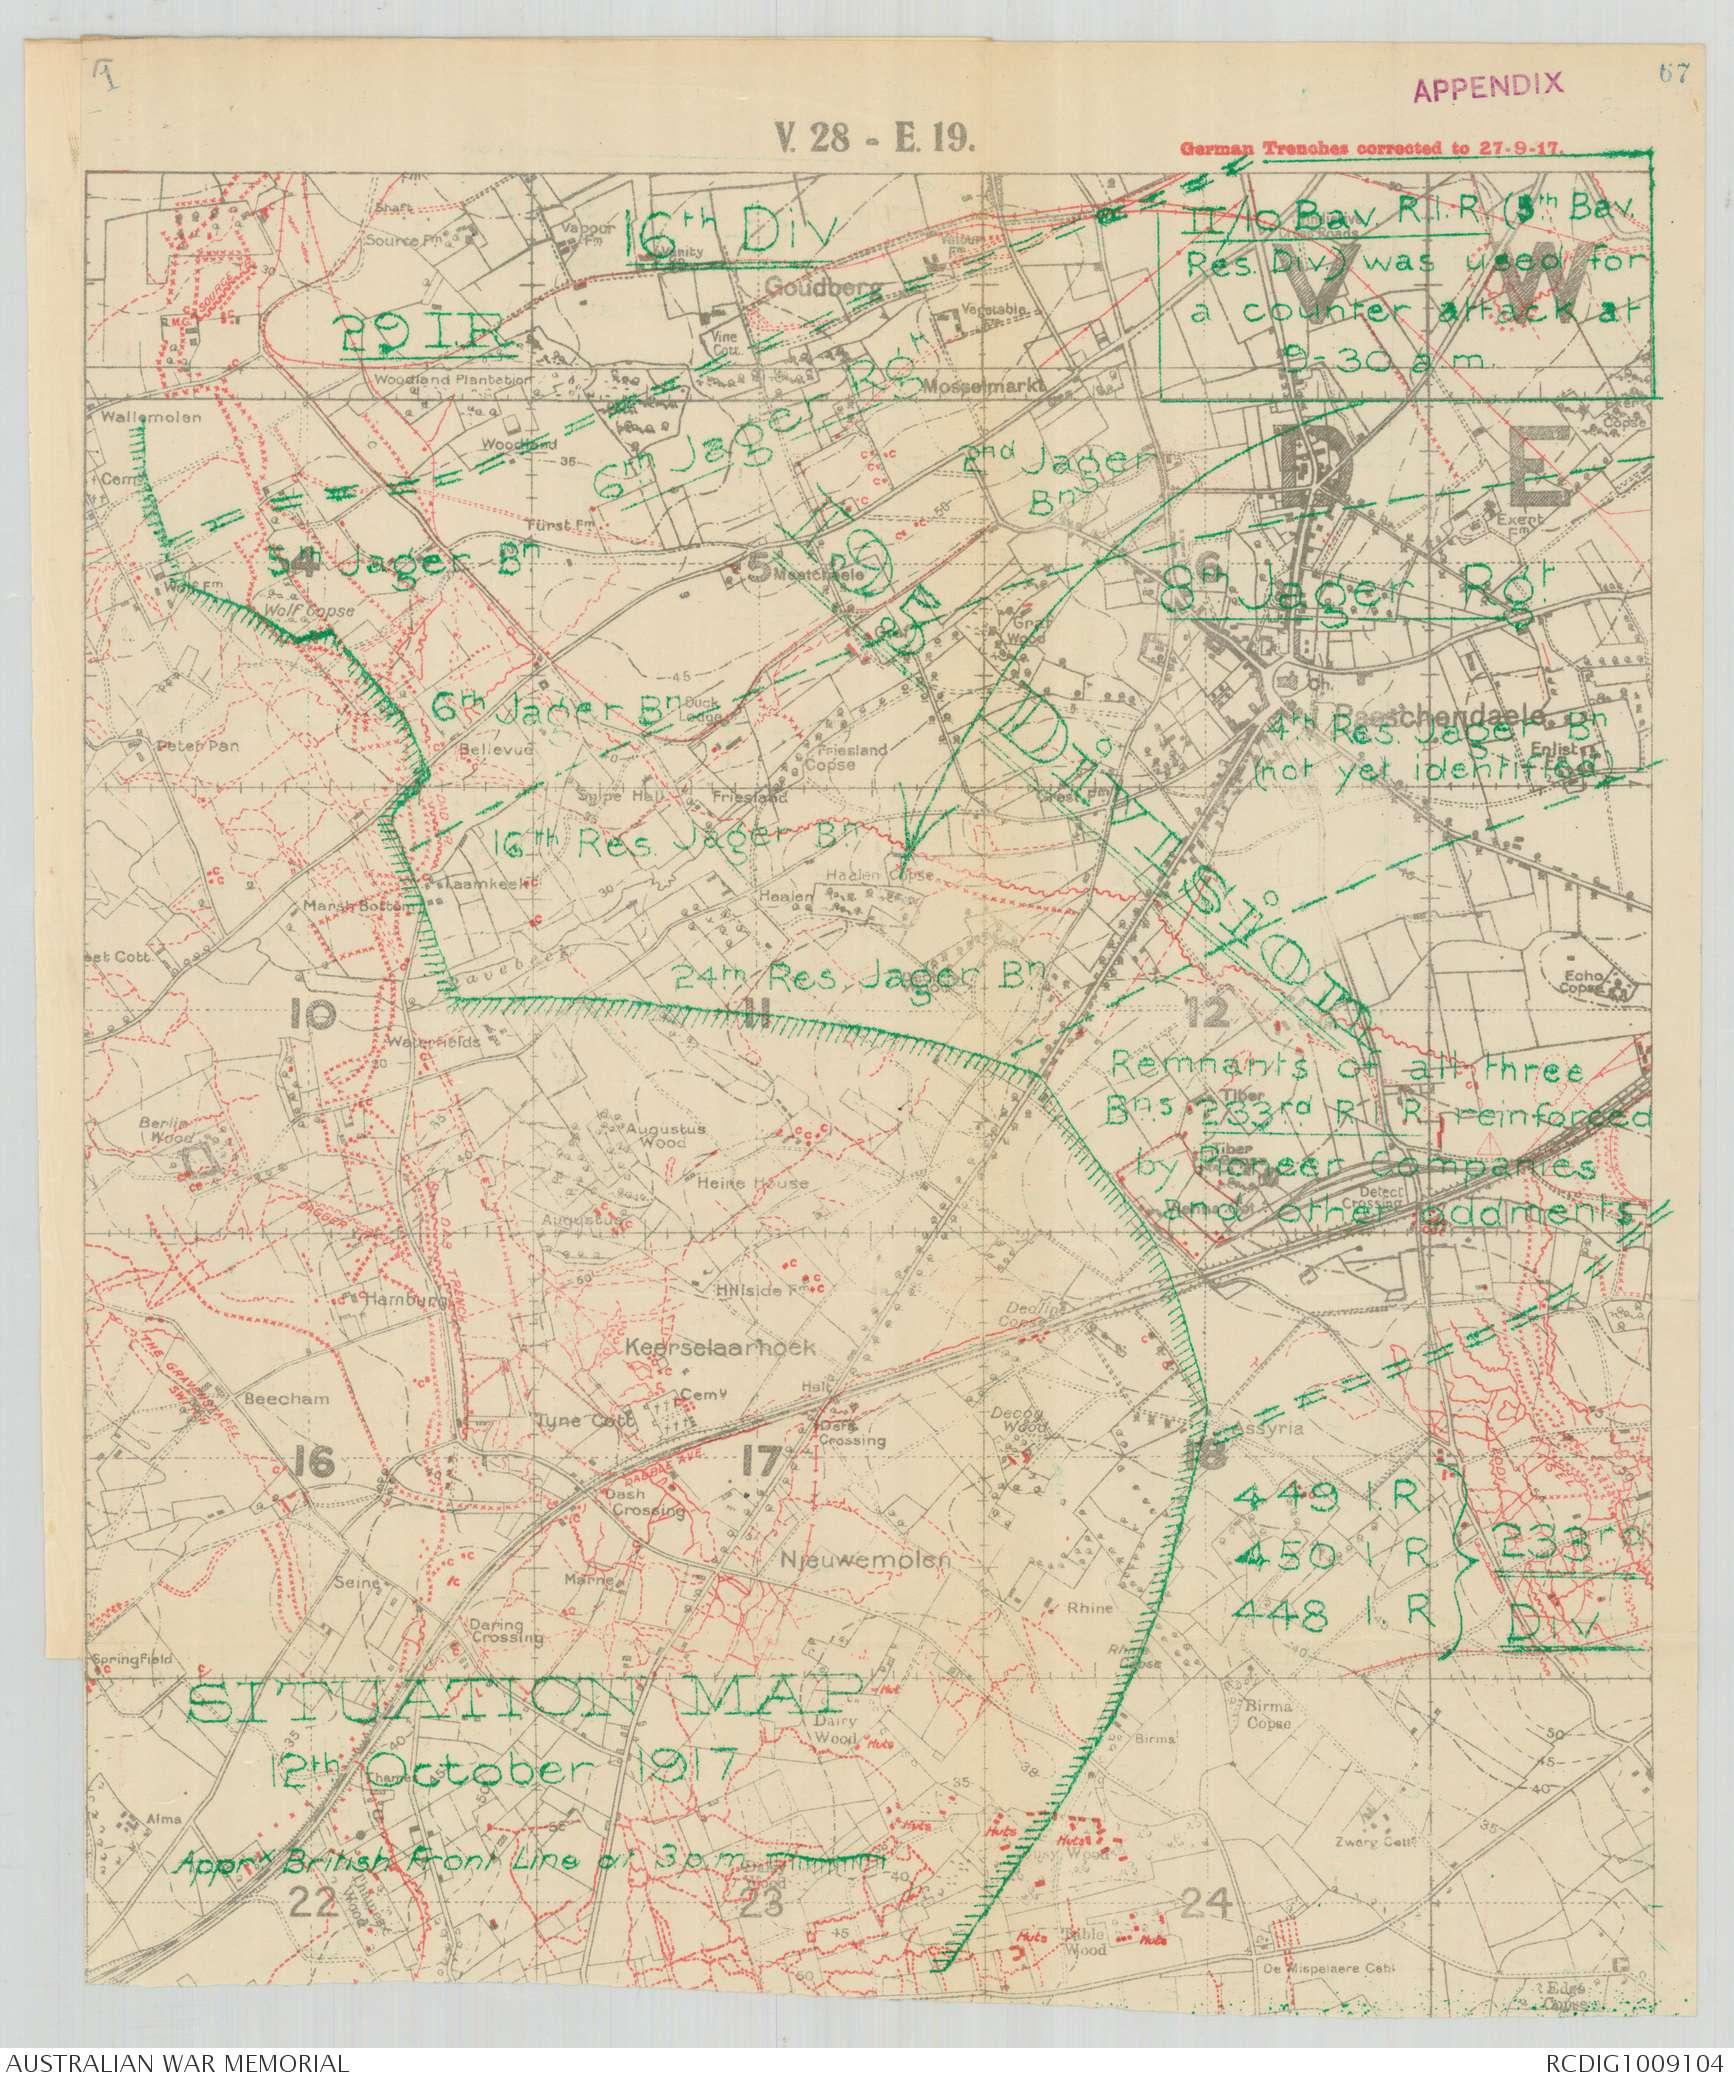 APPENDIX
67
V. 28 - E. 19.
German Trenches corrected to 27-9-17.
16th Div
29 I.R
II/10 Bav R.I.R (5th Bav.
Res. Div) was used for
a counter attack at
9-30 a m.
Shaft
Source Fm
Vapour
Fm
Vanity
Goudberg
SOURCE
M.G.
Vine
Cott.
Vegetable
Fm
V W
Woodland Plantation
Mosselmarkt
6th Jager Rgt
Wallemolen
Woodland
Cemy
2nd Jager
Bn
D E
Exert
Fm
Fürst Fm
5th Jager Bn
4
5
6
Meetcheele
8th Jager Rgt
Wolf Fm
Wolf Copse
Graf
Graf
Wood
195th Division
Ch.
6th Jager Bn
Duck
Lodge
Passchendaele
4th Res. Jager Bn
Enlist
(not yet identified)
Peter Pan
Bellevue
Friesland
Copse
Snipe Hall
Friesland
Crest Fm
16th Res. Jager Bn
Laamkeek
Haalen Copse
Haalen
Marsh Bottom
Ravebeek
24th Res. Jager Bn
Echo
Copse
10
11
12
Waterfields
Remnants of all three
Bns 233rd R.I.R reinforced
by Pioneer Companies
and other oddments
Tiber
Tiber
Copse
Defect
Crossing
Berlin
Wood
Augustus
Wood
Heine House
Augustus
DAGGER
DAB TRENCH
Hamburg
Hillside Fm
Decline
Copse
Keerselaarhoek
THE GRAVENSTAFEL
SWITCH
Beecham
Cemy
Halt
Tyne Cott
Dark
Crossing
Decoy
Wood
Assyria
16
17
18
DABBLE AVE.
Dash
Crossing
449 I.R
450 I R
448 I. R
233rd
Div
Nieuwemolen
Seine
Marne
Rhine
Daring
Crossing
Springfield
SITUATION MAP
12th October 1917
Hut
Dairy
Wood
Huts
Birma
Copse
Birma
Thames
Alma
Huts
Huts
Huts
Zwarg Cott
Apprx British Front Line at 3 p.m
22
23
24
Thames
Wood
Huts
Huts
Table
Wood
De Mispelaere Cabt
Edge
Copse
AUSTRALIAN WAR MEMORIAL
RCDIG1009104